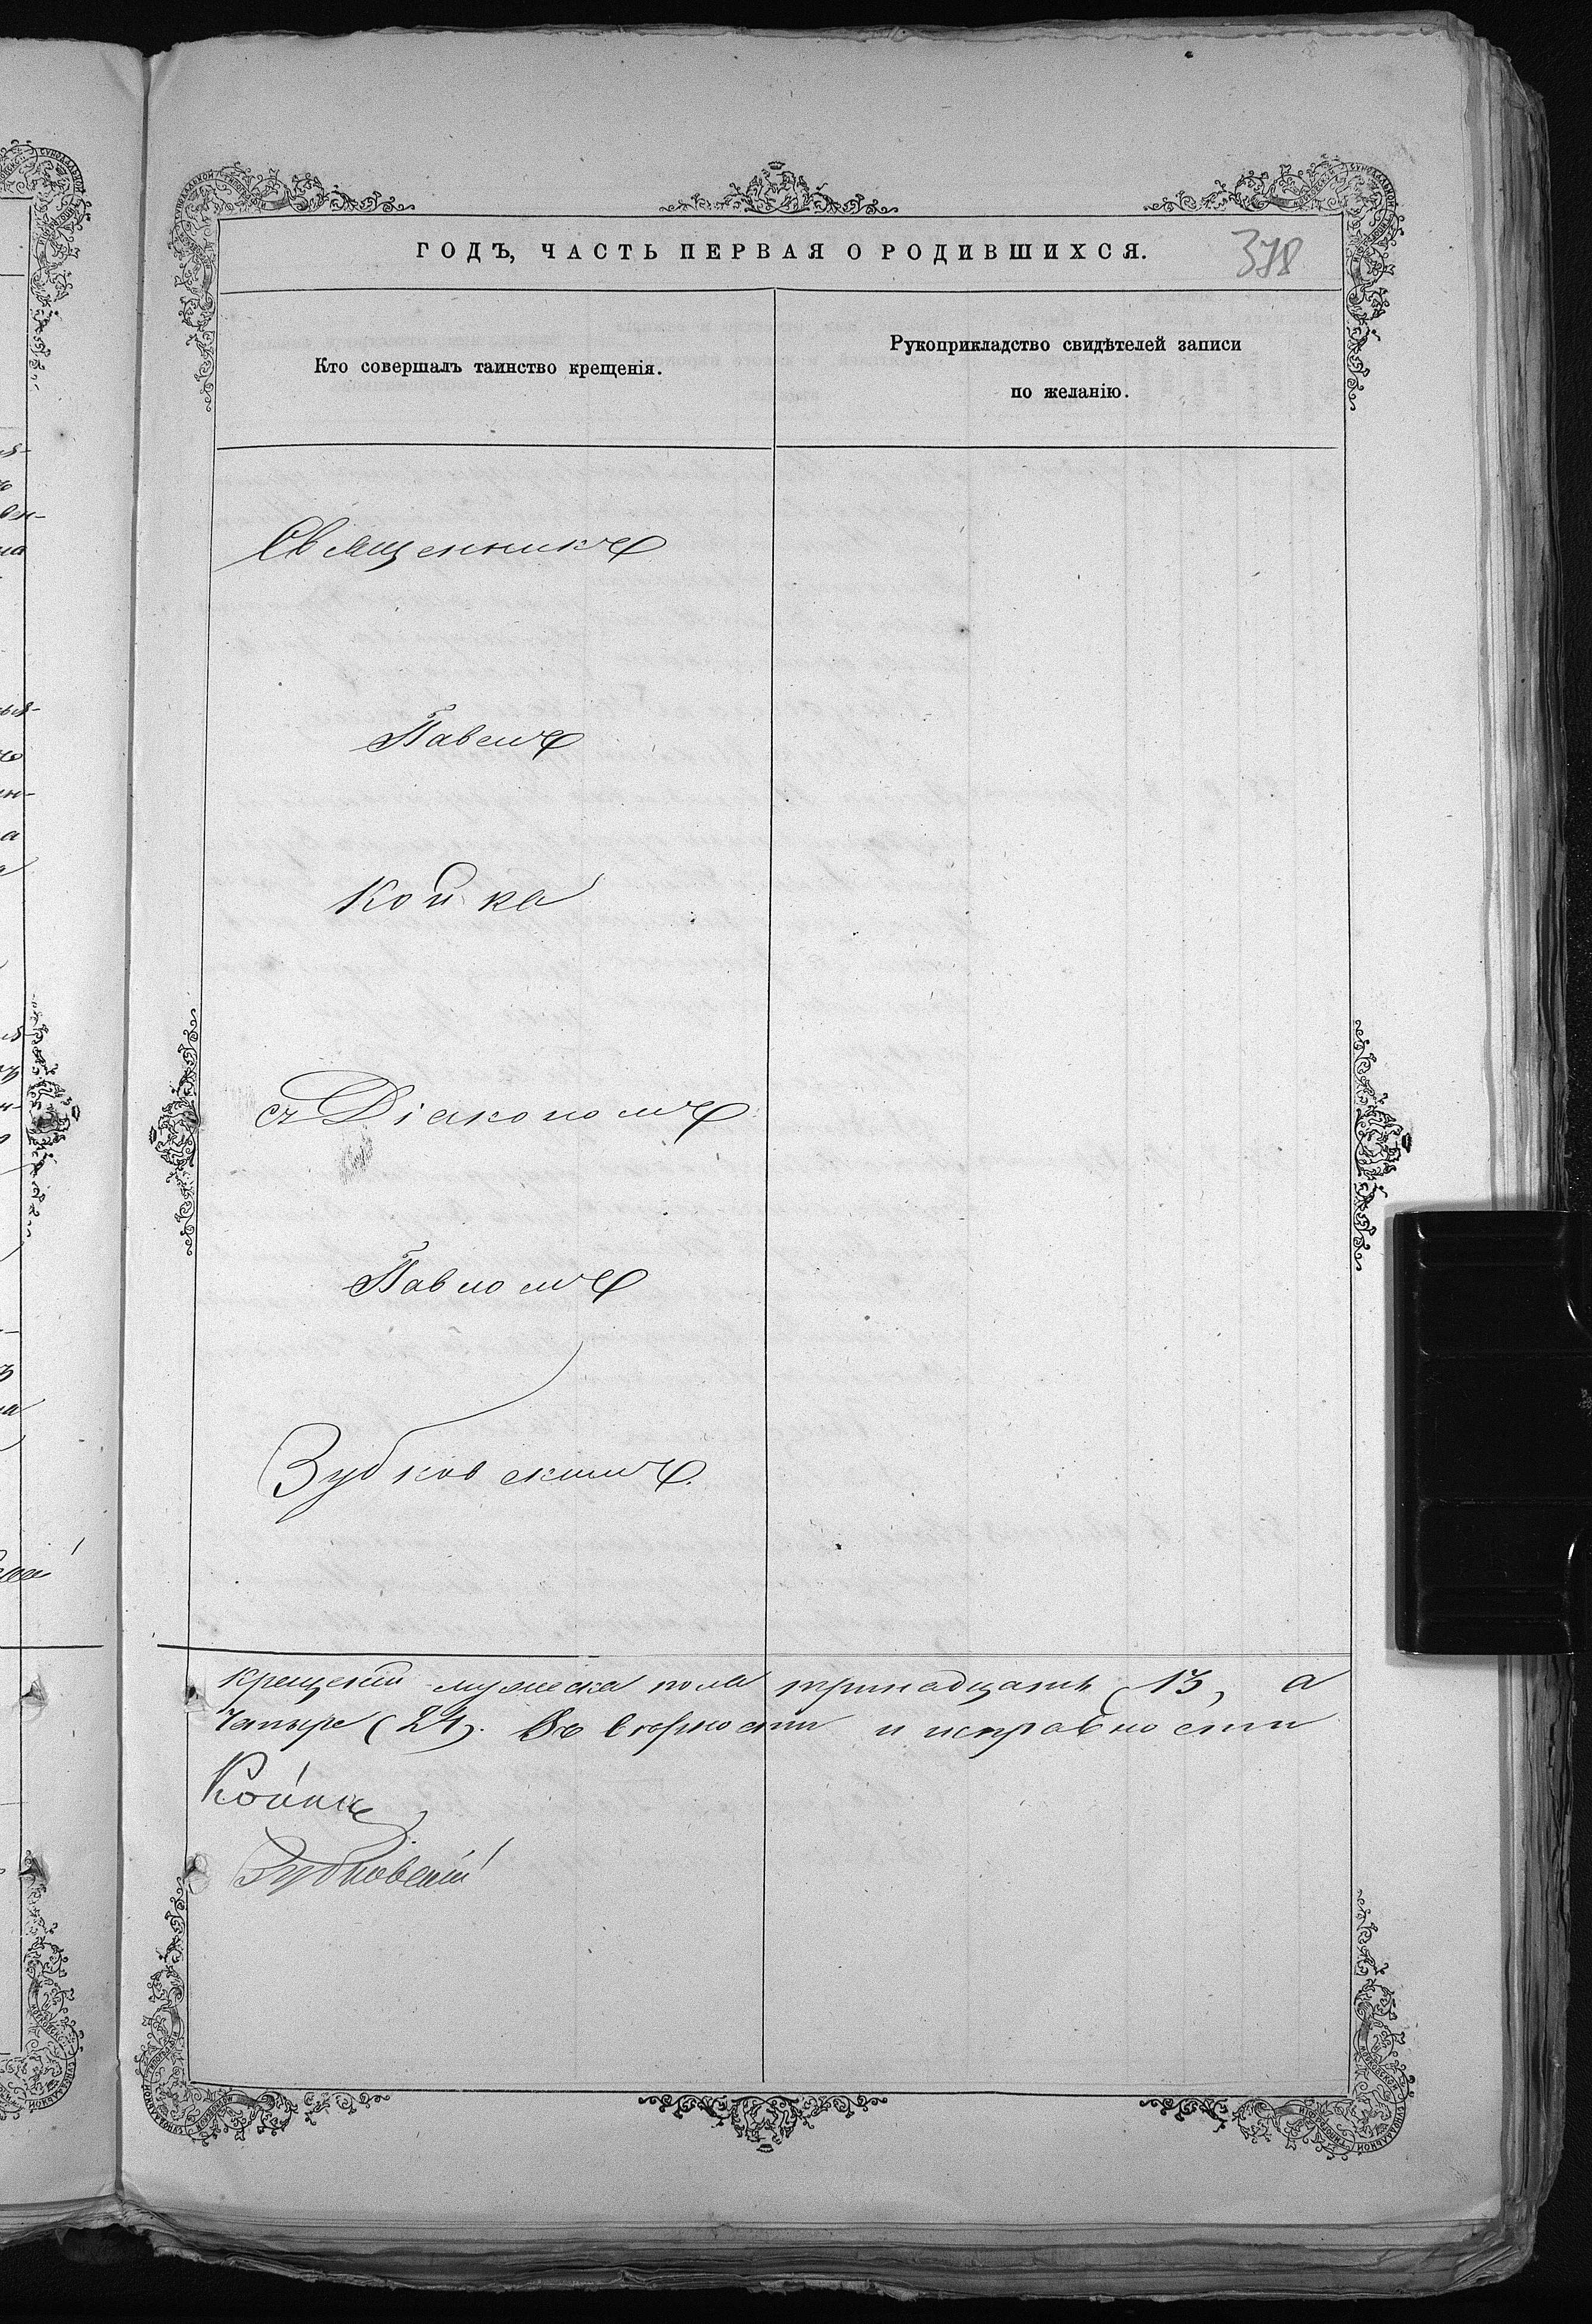 ГОДЪ, ЧАСТЬ ПЕРВАЯ О РОДИВШИХСЯ.
378
Кто совершалъ таинство крещенія.
Рукоприкладство свидѣтелей записи
по желанію.
Священникъ
Павелъ
Койка
съ Діакономъ
Павломъ
Зубковскимъ.
крещеній мужеска пола тринадцать (13), а
четыре (24). Въ вѣрности и исправности
Койка
Зубковскій